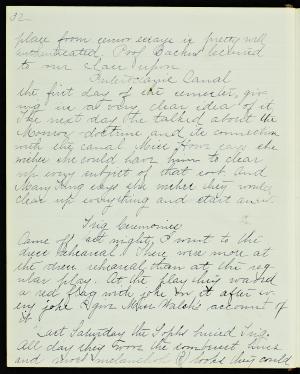 32
place from minor essays is pretty well
authenticated. Prof. Backus lectured
to our class upon
Interoceanic Canal
the first day of the semester, giv-
ing us a very clear idea of it.
The next day she talked about the
Monroe doctrine and its connection
with the canal. Miss says she
wishes she could have him to clear
up every subject of that sort. And
Mary King says she wishes they would
clear up everything and start anew.
Trig Ceremonies
Came off last night, I went to the
dress rehearsal. There were more at
the dress rehearsal than at the reg-
ular play. At the play they waved
a red flag with joke on it after ev-
ery joke. I give Miss Walsh's account of
it.
Last Saturday the Sophs buried Trig.
All day they wore the
and melancholy looks they could